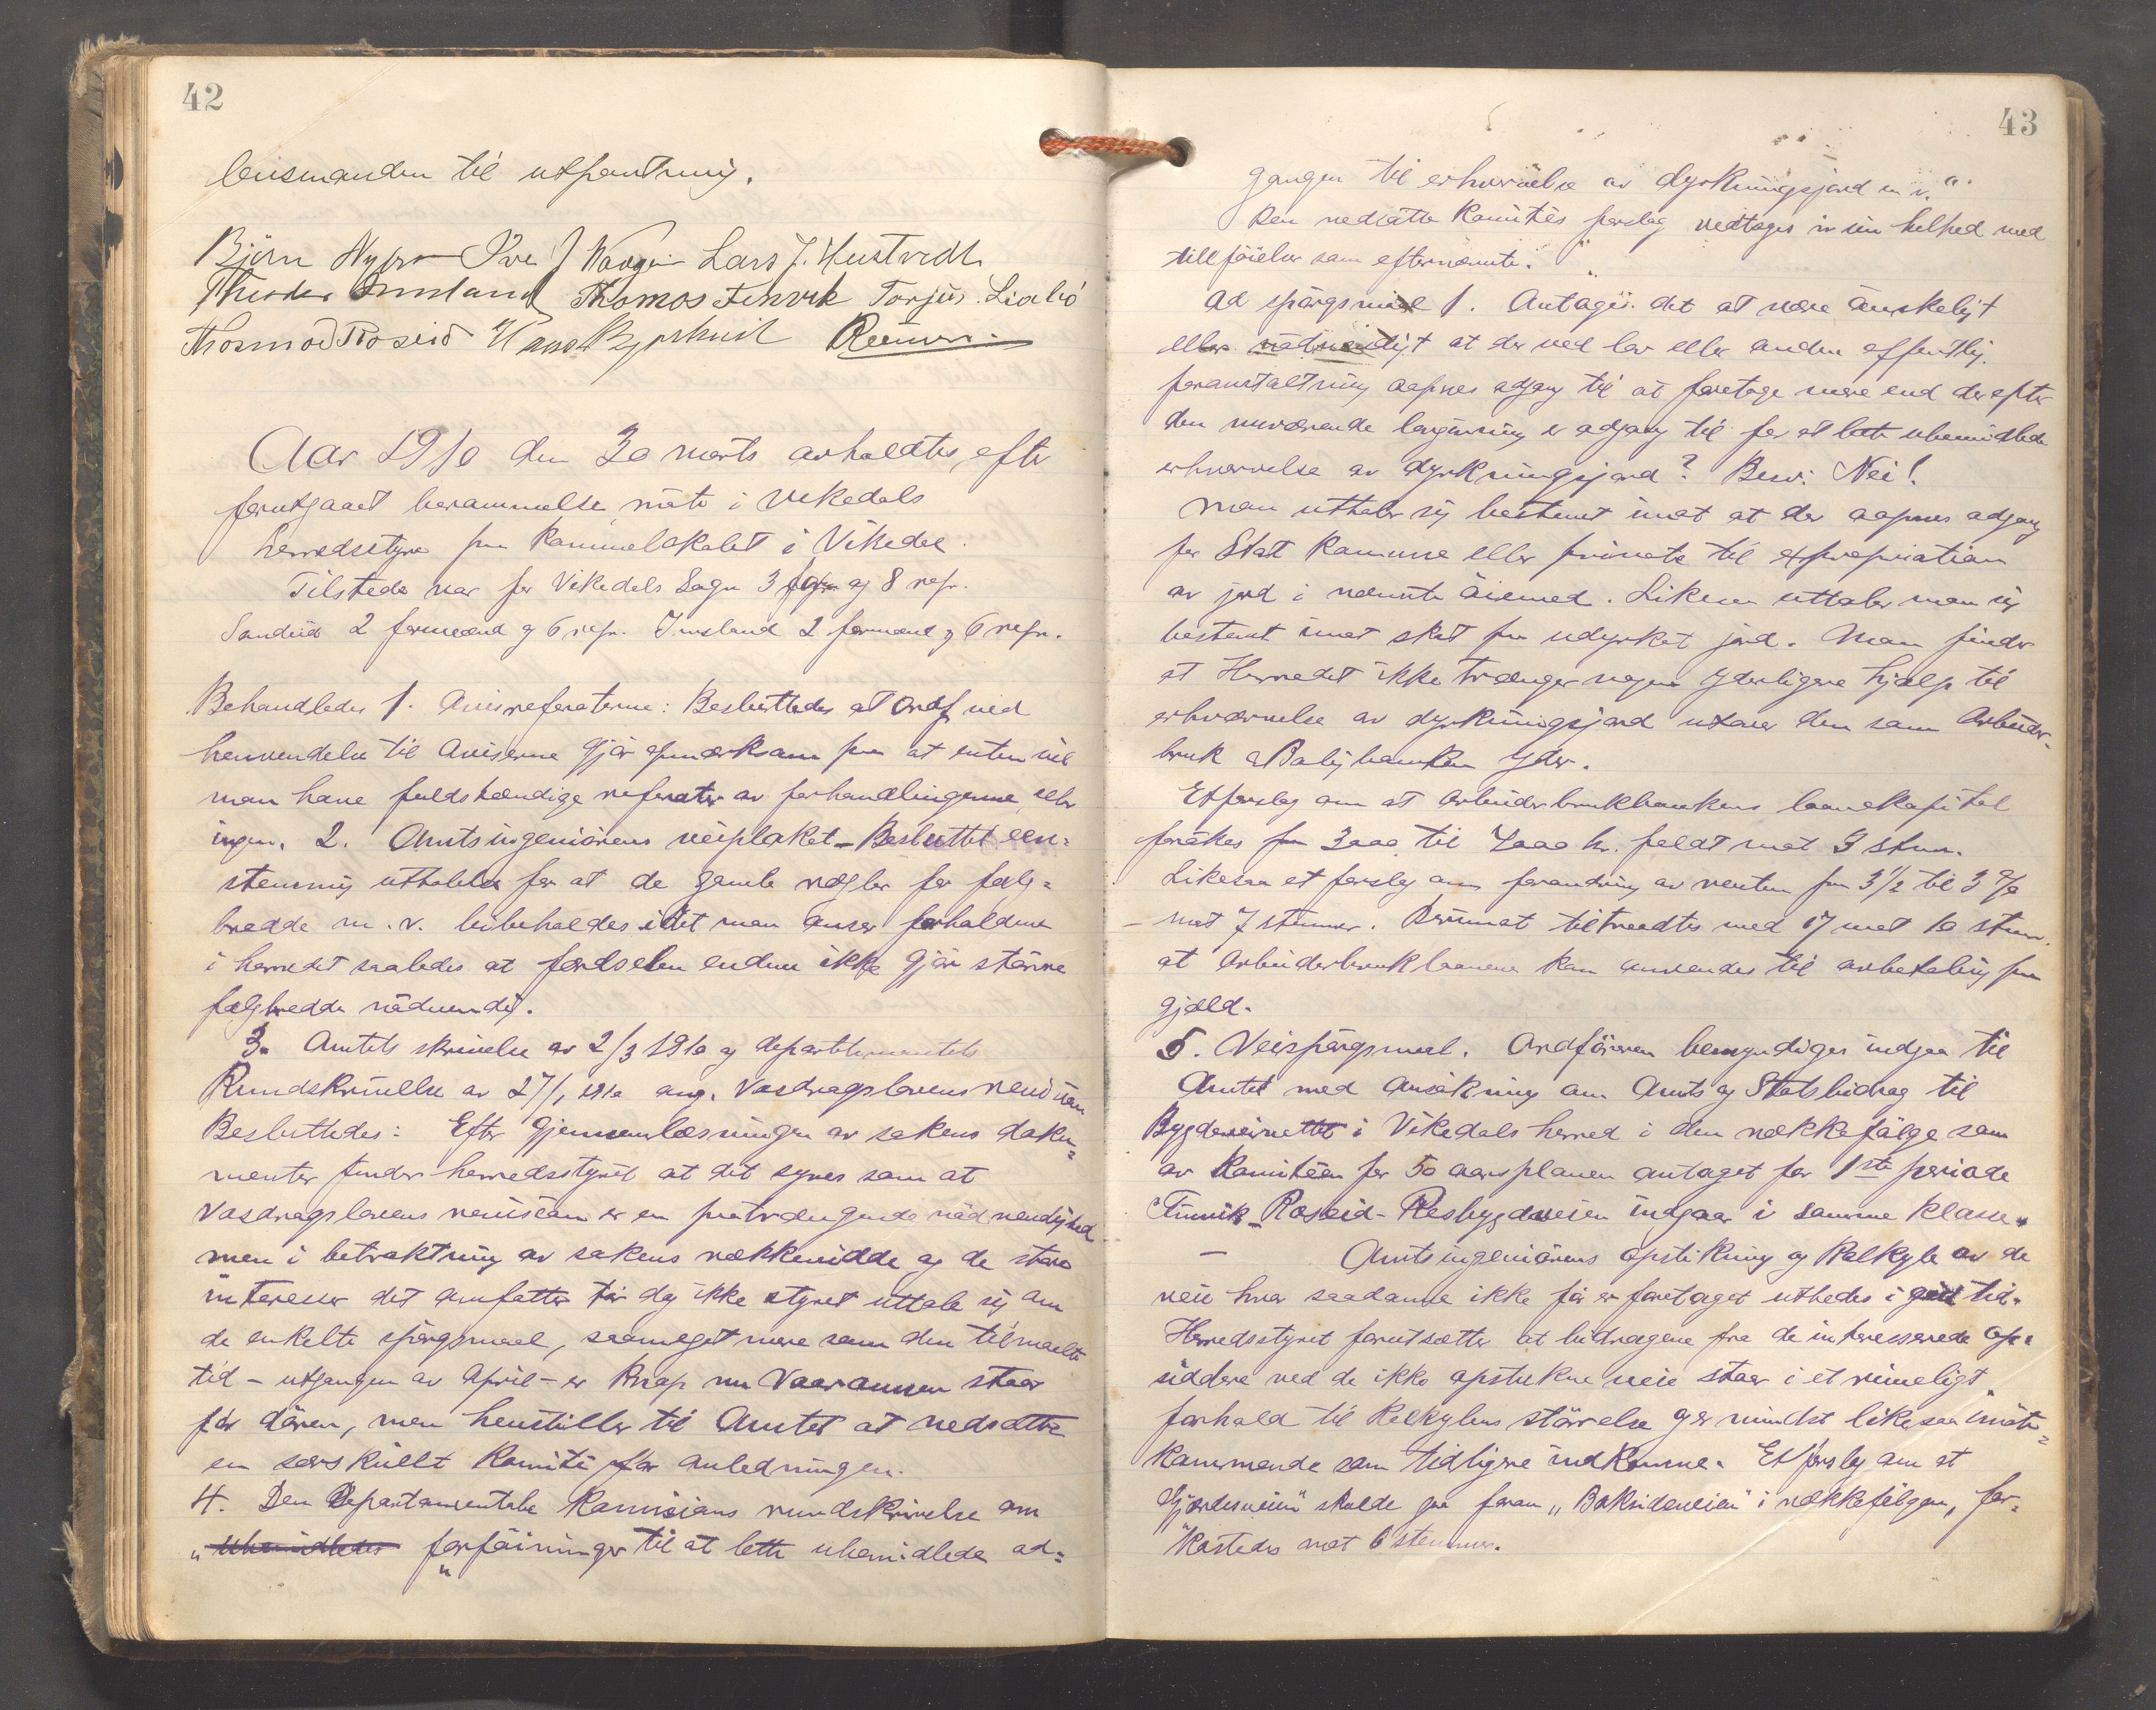 42
lensmanden til utpantning.
Björn Nybro Iver J Vaage Lars J. Mustvedt
Theodor Imsland Thomas Fennvik Torjus Liabö
Thormod Roseid Hans Reimers
Aar 1910 den 30 marts avholdtes, efter
forutgaaet berammelse, möte i Vikedals
Herredsstyre paa Kommelokalet i Vikedal.
Tilstede var for Vikedals Sogn 3 form og 8 repr.
Sandeid 2 formænd og 6 repr. Imsland 2 formænd og 6 repr.
Behandledes 1. Avisreferaterne: Besluttedes at Ordf ved
henvendelse til Aviserne gjör opmærksom paa at enten vil
man have fuldstændige referater av forhandlingerne eller
ingen. 2. Amtsingeniörens veiplakat – Besluttet een=
stemmig uttales for at de gamle regler for fælg=
bredde m. v. beibeholdes idet man anser forholdene
i herredet saaledes at færdselen endnu ikke gjör större
fælgbredde nödvendig.
3. Amtets skrivelse av 2/3 1910 og departementets
Rundskrivelse av 27/1 1910 ang. Vasdragslovens revision
Besluttedes: Efter gjennemlæsningen av sakens doku=
menter finder herredsstyret at det synes som at
Vasdragslovens revision er en paatrængende nödvendighed
men i betraktning av sakens rækkevidde og de store
interesser det omfatter tör dog ikke styret uttale sig om
de enkelte spörgsmaal, saameget mere som den tilmaalte
tid – utgangen av April – er knap nu Vaaronnen staar
for dören, men henstiller til Amtet at nedsætte
en særskillt Komite for anledningen.
4. Den Departementale Komissions rundskrivelse om
"ubemidledes forföininger til at lette ubemidlede ad=
43
gangen til erhvervelse av dyrkningsjord m. v."
Den nedsatte Komités forslag vedtoges i sin helhed med
tillföielser som efternævnte.
Ad spörgsmaal 1. Antages det at være önskeligt
eller nödvendigt at der ved lov eller anden offentlig
foranstaltning aapnes adgang til at foretage mere end der efter
den nuværende lovgivning er adgang til for at lette ubemidlede
erhvervelse av dyrkningsjord? Besv: Nei!
Man uttaler sig bestemt imot at der aapnes adgang
for Stat Kommune eller private til expropriation
av jord i nævnte öiemed. Likesaa uttaler man sig
bestemt imot skat paa udyrket jord. Man finder
at Herredet ikke trænger nogen yderligere hjælp til
erhvervelse av dyrkningsjord utover den som Arbeider=
bruk & Boligbanken yder.
Et forslag om at arbeiderbrukbankens laanekapital
forökes fra 3000 til 4000 kr. faldt mot 9 stem.
Likesaa et forslag om forandring av renten fra 3 1/2 til 3 %
– mot 7 stemmer. Derimot tiltraadtes med 17 mot 10 stem.
at arbeiderbruklaanene kan anvendes til avbetaling paa
gjæld.
5. Veispörgsmaal. Ordföreren bemyndiges indgaa til
Amtet med Ansökning om Amts og Statsbidrag til
Bygdeveinettet i Vikedals herred i den rækkefölge som
av Komitéen for 50 aarsplanen antaget for 1ste periode
Fennvik – Roseid – Resbygdveien indgaar i samme klasse.
– Amtsingeniörens opstikning og Kalkyle av de
veie hvor saadanne ikke för er foretaget utbedes i god tid.
Herredsstyret forutsætter at bidragene fra de interesserede op=
siddere ved de ikke opstukne veie staar i et rimeligt
forhold til Kalkylens störrelse og er mindst likesaa imöte=
kommende som tidligere indkomne. Et forslag om at
"Fjordveien" skulde gaa foran "Baksideveien" i rækkefölgen, for=
kastedes mot 6 stemmer.